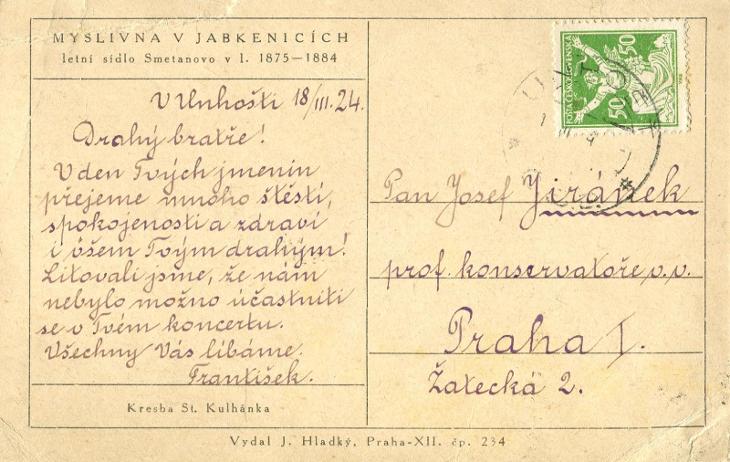 MYSLIVNA V JABKENICÍCH
letní sídlo Smetanovo v l. 1875—1884
V Unhošti 18/III. 24.
Drahý bratře!
V den Tvých jmenin
přejeme mnoho štěstí,
spokojenosti a zdraví
i všem Tvým drahým!
Litovali jsme, že nám
nebylo možno účastniti
se v Tvém koncertu.
Všechny Vás líbáme.
František.
Kresba St. Kulhánka
POŠTA ČESKOSLOVENSKÁ
50 50
Pan Josef Jiránek
prof. konservatoře v.v.
Praha I.
Žatecká 2.
Vydal J. Hladký, Praha-XII. čp. 234